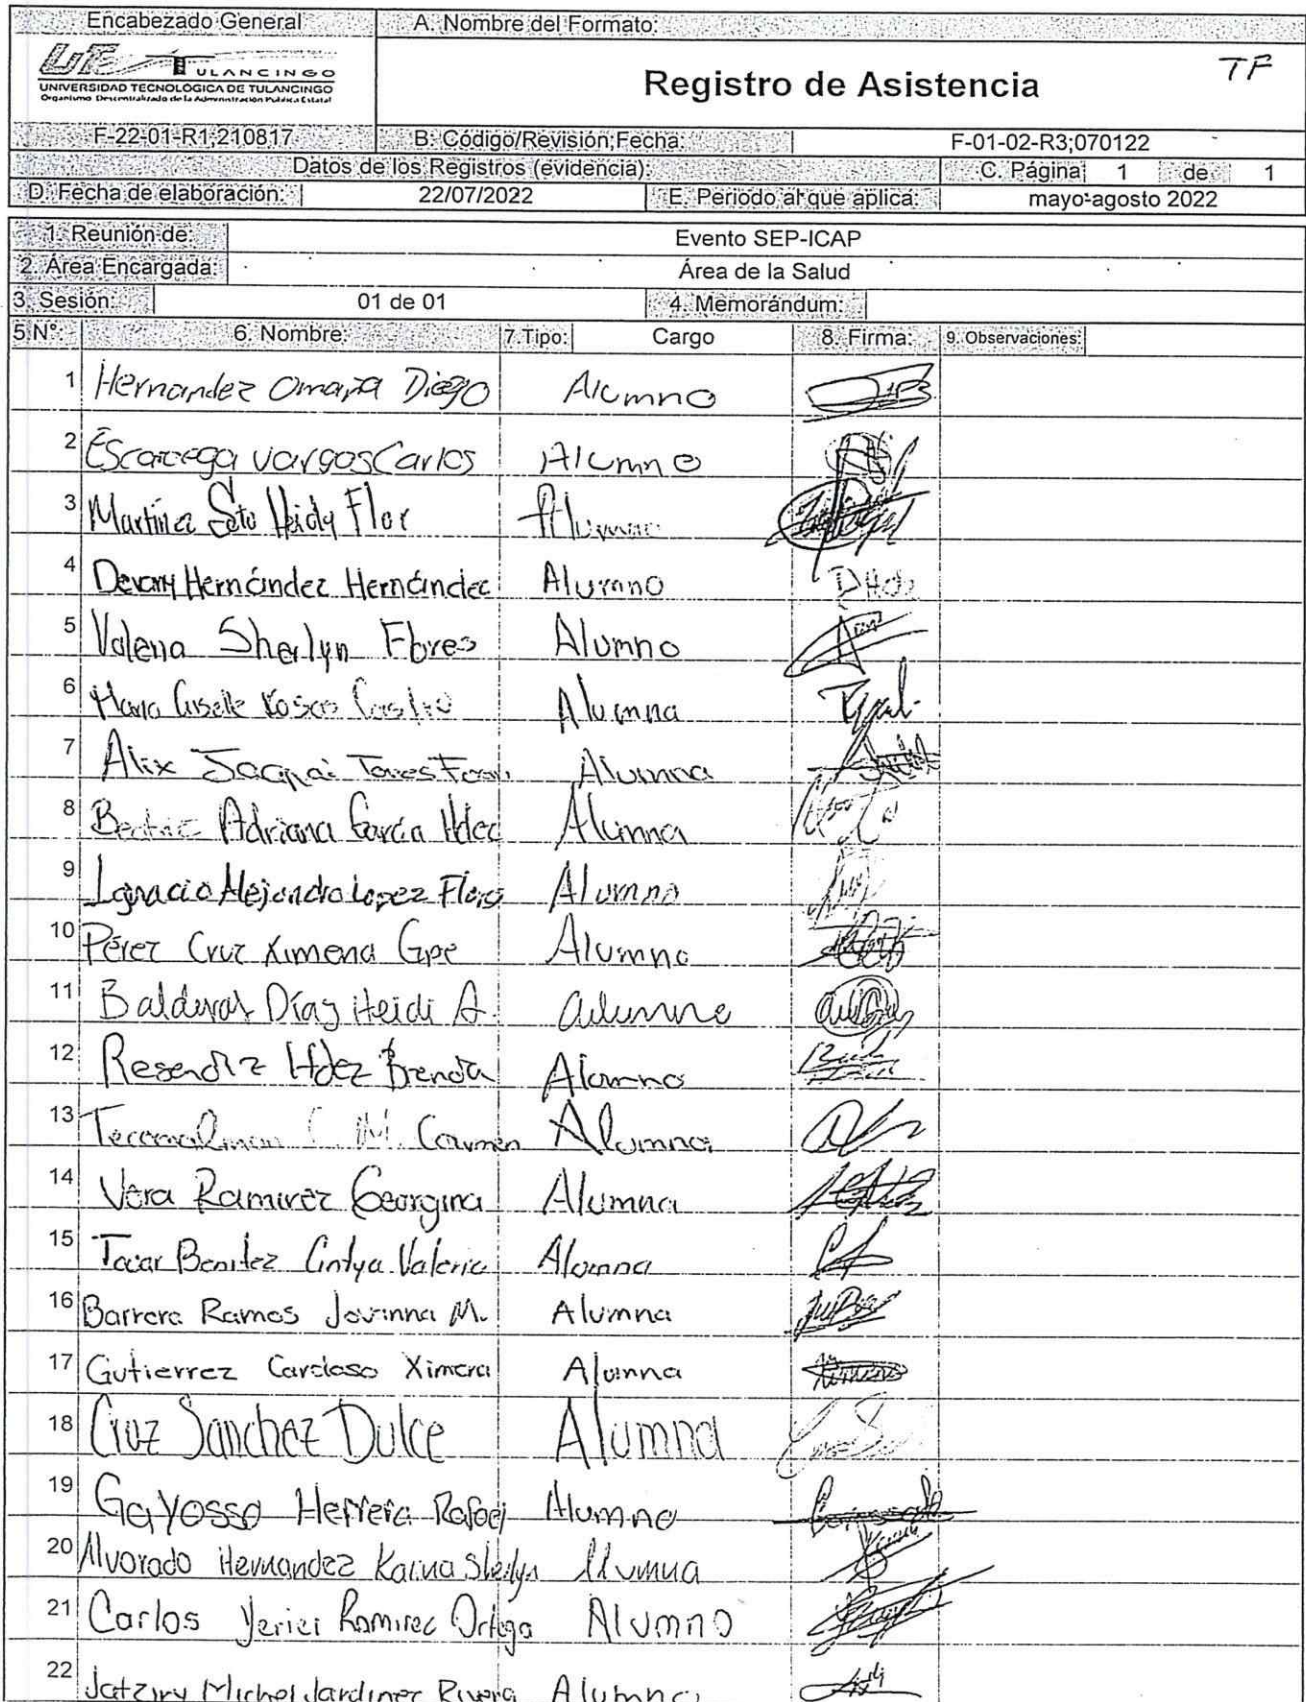 Encabezado General A. Nombre del Formato:
UT TULANCINGO
UNIVERSIDAD TECNOLÓGICA DE TULANCINGO
Organismo Descentralizado de la Administración Pública Estatal
Registro de Asistencia TF
F-22-01-R1;210817 B: Código/Revisión;Fecha: F-01-02-R3;070122
Datos de los Registros (evidencia): C. Página 1 de 1
D. Fecha de elaboración: 22/07/2022 E. Periodo al que aplica: mayo-agosto 2022
1. Reunión de: Evento SEP-ICAP
2. Área Encargada: Área de la Salud
3. Sesión: 01 de 01 4. Memorándum:
5.N°: 6. Nombre: 7.Tipo: Cargo 8. Firma: 9. Observaciones:
1 Hernandez Omaña Diego Alumno
2 Escarcega Vargas Carlos Alumno
3 Martínez Soto Heidy Flor Alumno
4 Devany Hernández Hernández Alumno
5 Valeria Sherlyn Flores Alumno
6 Maria Giselle Rosas Castro Alumna
7 Alix Torres Alumna
8 Beatriz Adriana García Hdez Alumna
9 Ignacio Alejandro Lopez Flores Alumno
10 Pérez Cruz Ximena Gpe Alumna
11 Balderas Díaz Heidi A. alumna
12 Resendiz Hdez Brenda Alumna
13 C. M. Carmen Alumna
14 Vera Ramirez Georgina Alumna
15 Tovar Benitez Cintya Valeria Alumna
16 Barrera Ramos Jovanna M. Alumna
17 Gutierrez Cardoso Ximena Alumna
18 Cruz Sanchez Dulce Alumna
19 Gayosso Herrera Rafael Alumno
20 Alvorado Hernandez Karina Sherlyn Alumna
21 Carlos Ramirez Ortega Alumno
22 Jatziry Michel Jardinez Rivera Alumna